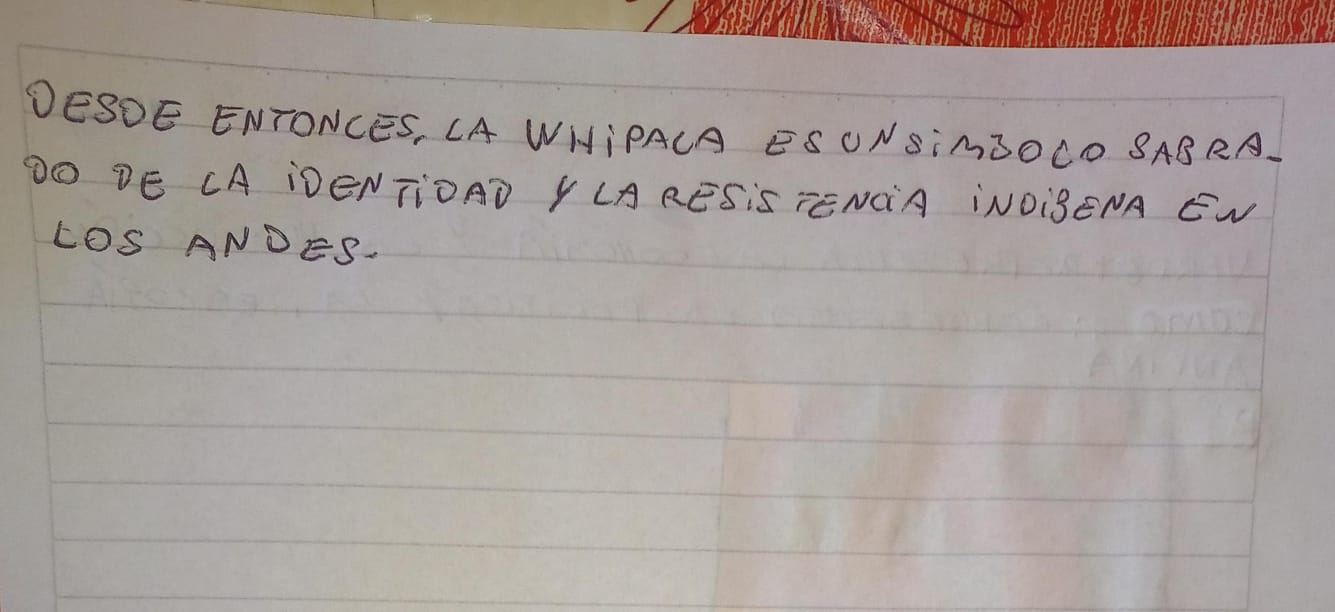 DESDE ENTONCES, LA WHIPALA ES UN SIMBOLO SAGRA-
DO DE LA IDENTIDAD Y LA RESISTENCIA INDIGENA EN
LOS ANDES.